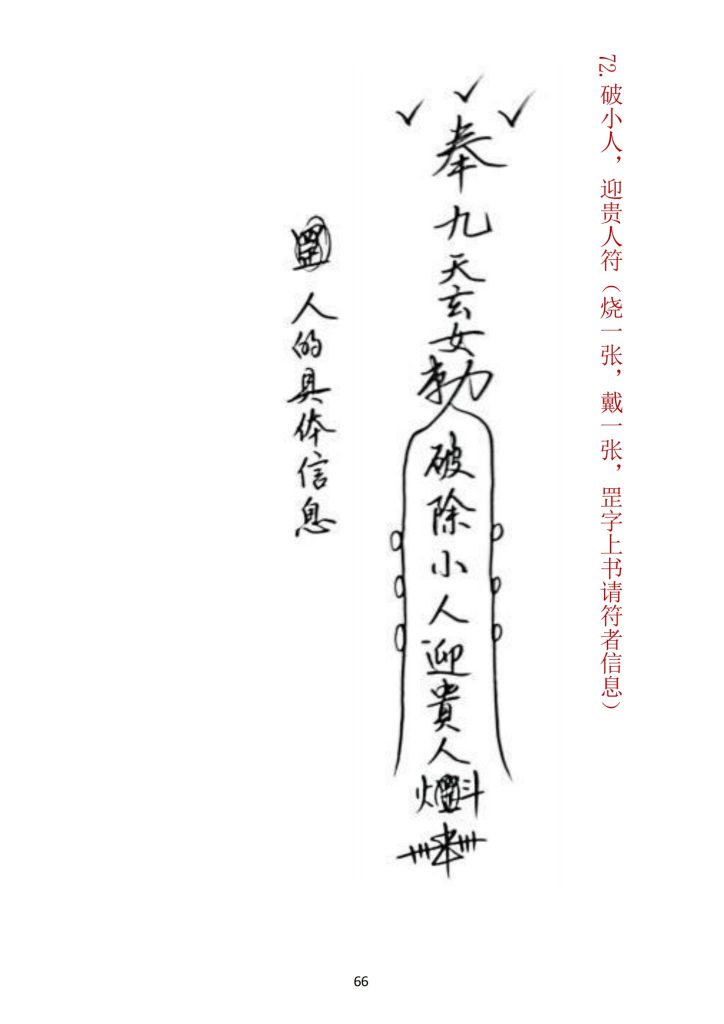 72. 破小人，迎贵人符（烧一张，戴一张，罡字上书请符者信息）
奉九天玄女勅
破除小人迎貴人
罡人的具体信息
66